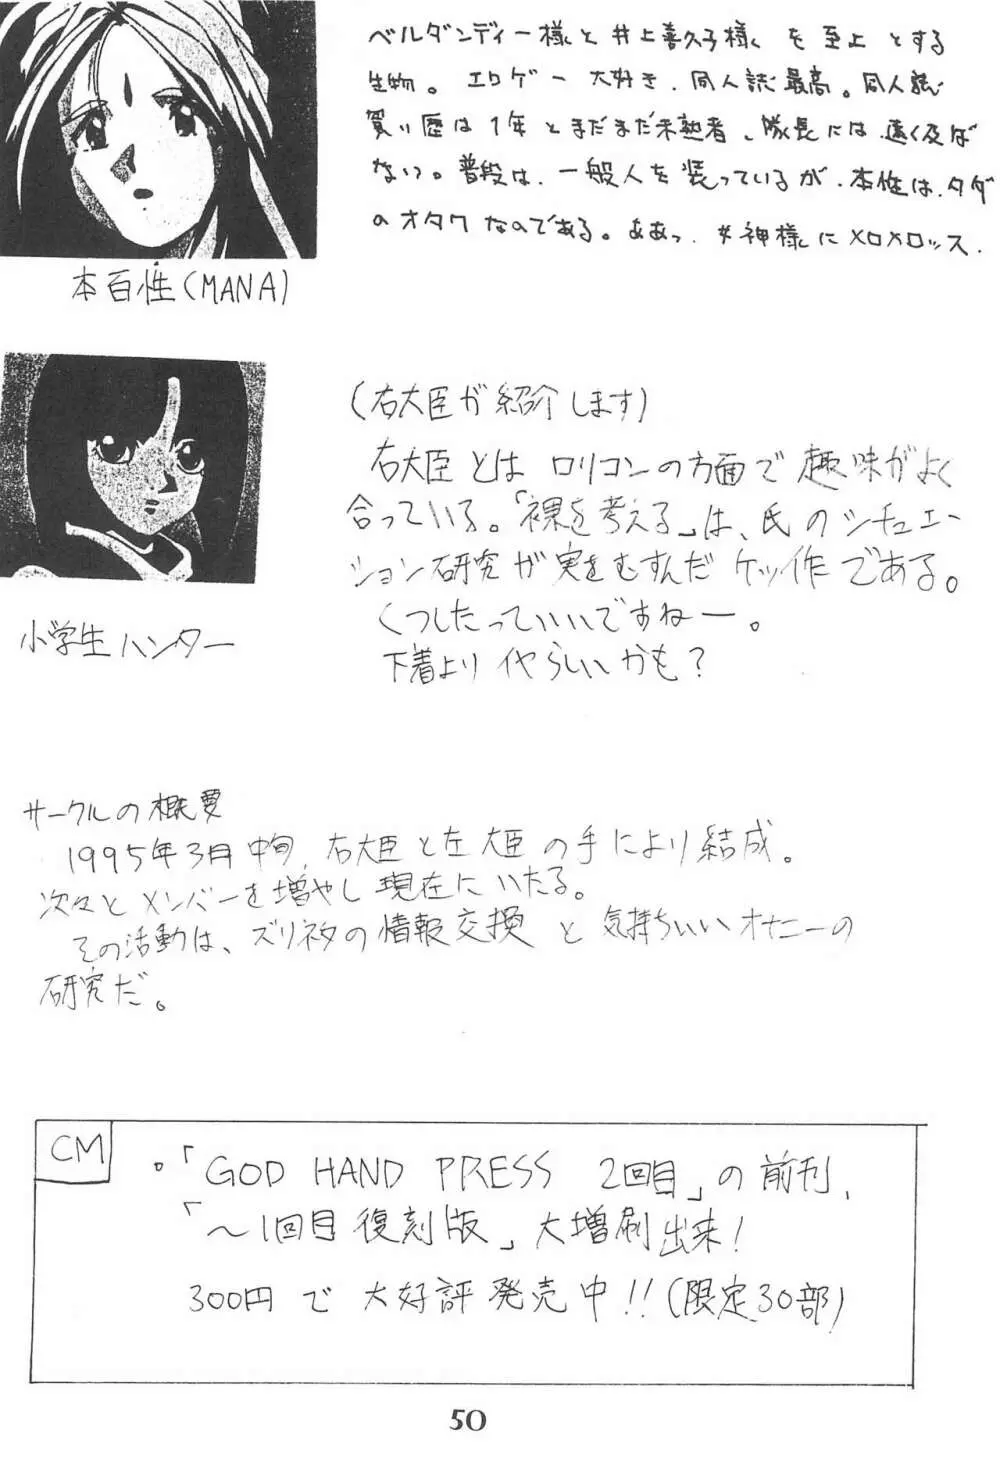 ベルダンディー様と井上喜久子様を至上とする
生物。エロゲー大好き、同人誌最高。同人誌
買い歴は1年とまだまだ未熟者、隊長には遠く及ば
ない。普段は、一般人を装っているが、本性は、タダ
のオタクなのである。ああっ、女神様にメロメロッス.
本百性(MANA)
(右大臣が紹介します)
右大臣とはロリコンの方面で趣味がよく
合っている。「裸を考える」は、氏のシチュエー
ション研究が実をむすんだケッ作である。
くつしたっていいですねー。
下着よりイヤらしいかも?
小学生ハンター
サークルの概要
1995年3月中旬,右大臣と左大臣の手により結成。
次々とメンバーを増やし現在にいたる。
その活動は、ズリネタの情報交換と気持ちいいオナニーの
研究だ。
CM
。「GOD HAND PRESS 2回目」の前刊,
「〜1回目復刻版」大増刷出来!
300円で大好評発売中!!(限定30部)
50